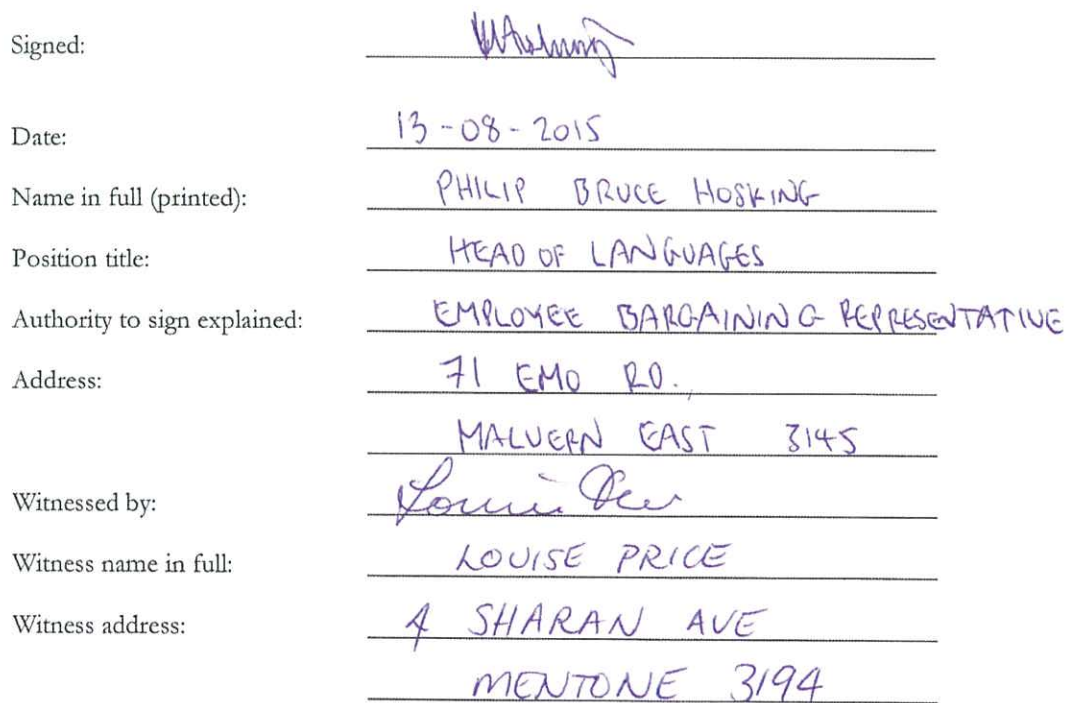 Signed:
Date: 13-08-2015
Name in full (printed): PHILIP BRUCE HOSKING
Position title: HEAD OF LANGUAGES
Authority to sign explained: EMPLOYEE BARGAINING REPRESENTATIVE
Address: 71 EMO RD.
MALVERN EAST 3145
Witnessed by:
Witness name in full: LOUISE PRICE
Witness address: 4 SHARAN AVE
MENTONE 3194